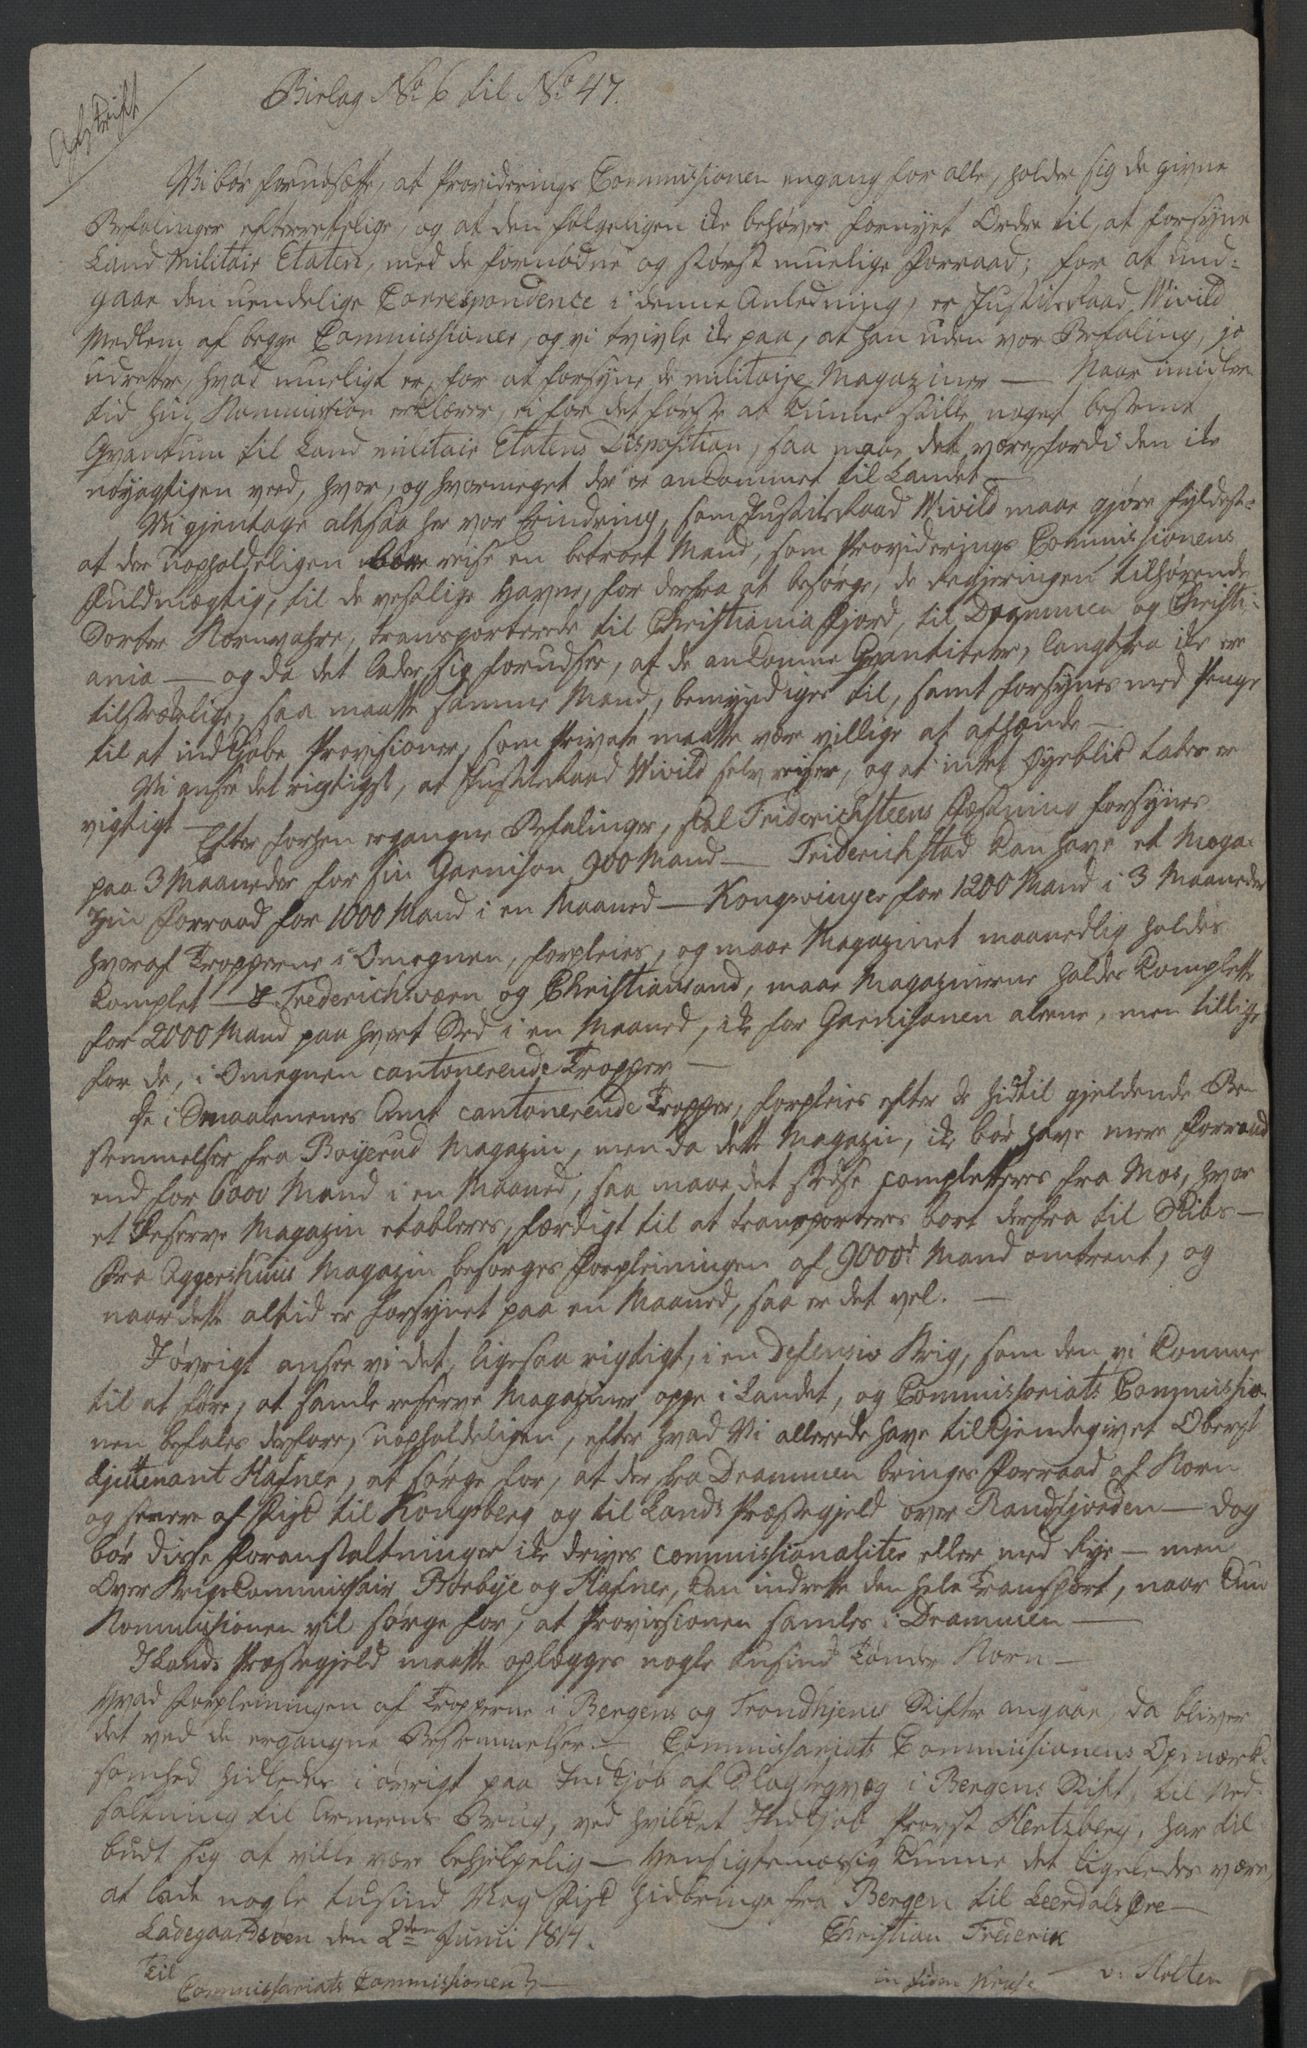 Afskrift
Bielag No 6 til No 47.
Vi bør forudsætte, at Providerings Commissionen engang for alle, holder sig de givne
Befalinger efterrettelige, og at den følgeligen ikke behøver fornyet Ordre til, at forsyne
Land Militair Etaten, med de fornødne og størst muelige Forraad; for at und-
gaae den uendelige Correspondence i denne Anledning, er Justitsraad Wivild
Medlem af begge Commissioner, og vi tvivle ik paa, at han uden vor Befaling, jo
udretter, hvad mueligt er, for at forsyne de militaire Magaziner — Naar imidler
tid hin Kommission erklærer, ei for det første at kunne stille noget bestemt
Qvantum til Land militair Etatens Disposition, saa maae det være, fordi den ike
nøyagtigen veed, hvor, og hvormeget der er ankommet til Landet —
Vi gjentage altsaa her vor Erindring, som Justitsraad Wivild maae gjøre fyldest-
at der uopholdeligen bør reise en betroet Mand, som Providerings Commissionens
Fuldmægtig, til de vestlige Havne, for derfra at besørge, de Regjeringen tilhørende
Sorter Kornvahre, transporterede til Christiania Fjord, til Drammen og Christi-
ania — og da det lader sig forudsee, at de ankomne Qvantiteter, langtfra ike ere
tilstrækelige, saa maatte samme Mand, bemyndiges til, samt forsynes med Penge
til at indkjøbe Provisioner, som Private maatte være villige at afhænde —
Vi ansee det rigtigst, at Justitsraad Wivild selv reiser, og at intet Øyeblik tabes er
vigtigt —
Efter forhen ergangne Befalinger, skal Friderichsteens Fæstning forsynes
paa 3 Maaneder for sin Garnison 900 Mand — Friderichstad kan have et Maga-
zin Forraad for 1000 Mand i en Maaned — Kongsvinger for 1200 Mand i 3 Maaneder
hvoraf Tropperne i Omegnen, forpleies, og maae Magazinet maanedlig holdes
komplet — Frederichsværn og Christiansand, maae Magazinerne holdes komplette
for 2000 Mand paa hvert Sted i en Maaned, ik for Garnisonen alene, men tillige
for de, i Omegnen cantonerende Tropper —
De i Smaalenenes Amt cantonerende Tropper, forpleies efter de hidtil gjeldende Be-
stemmelser fra Bøyerud Magazin, men da dette Magazin, ik bør have mere Forraad
end for 6000 Mand i en Maaned, saa maae det stedse completteres fra Mos, hvor
et Reserve Magazin etableres, færdigt til at transporteres bort derfra til Skibs —
Fra Aggershuus Magazin besørges Forpleiningen af 9000 Mand omtrent, og
naar dette altid er forsynet paa en Maaned, saa er det vel. —
I øvrigt ansee vi det, ligesaa rigtigt, i en Defensiv Krig, som den vi komme
til at føre, at samle reserve Magaziner oppe i Landet, og Commissariats Commissio-
nen befales derfore, uopholdeligen, efter hvad Vi allerede have tilkjendegivet Oberst
Ljutenant Hafner, at sørge for, at der fra Drammen bringes Forraad af Korn
og senere af Fisk til Kongsberg og til Lands Præstegjeld over Randsfjorden — dog
bør disse Foranstaltninger ik drives commissionaliter eller med Rye — men
Over Krigs Commissair Børbye og Hafner, kan indrette den hele Transport, naar kun
Kommissionen vil sørge for, at Provisionen samles i Drammen —
I Lands Præstegjeld maatte oplægges nogle tusind Tønder Korn —
Hvad Forpleiningen af Tropperne i Bergens og Trondhjems Stifter angaaer, da bliver
det ved de ergangne Bestemmelser — Commissariats Commissionens Opmærk-
somhed hidledes i øvrigt paa Indkjøb af Slagteqvæg i Bergens Stift, til Ned-
saltning til Armeens Brug, ved hvilket Indkjøb Provst Hertzberg, har til
budt sig at ville være behjelpelig — Hensigtsmæssig kunne det ligeledes være,
at lade nogle tusind Vog Fisk hidbringe fra Bergen til Leerdals Øre —
Ladegaardsøen den 2den Junii 1814.
Christian Frederik
v. Holten
Til
Commissariats Commissionen